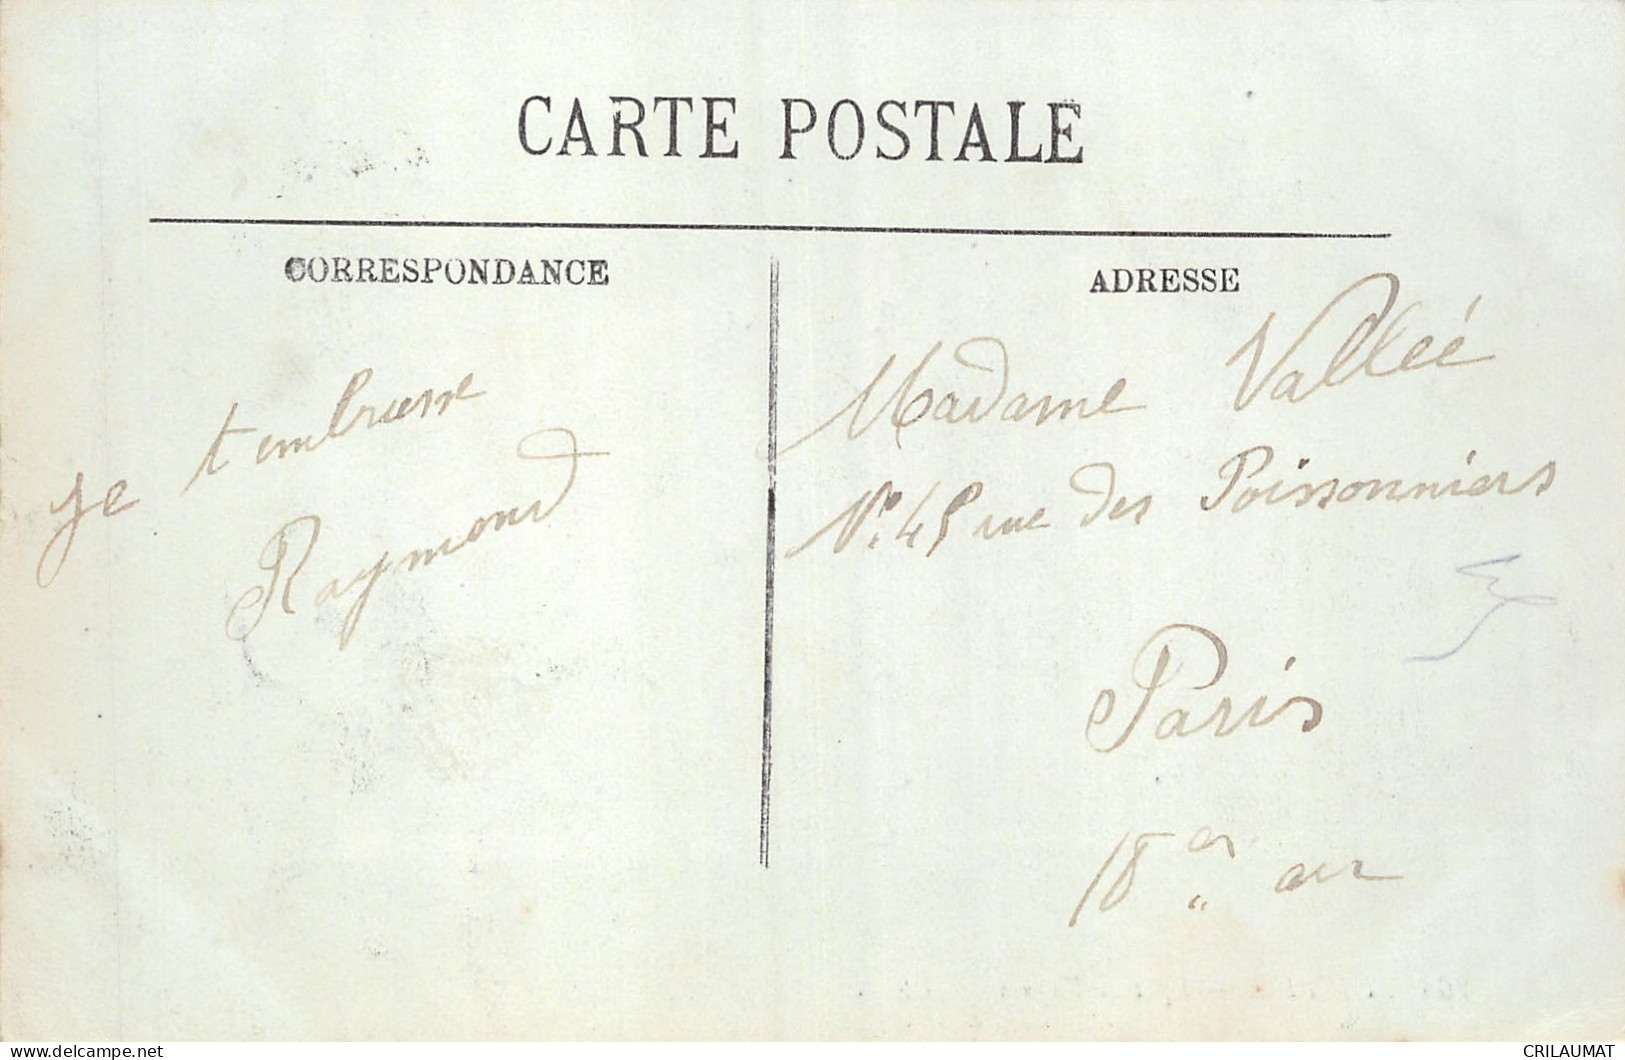 CARTE POSTALE
CORRESPONDANCE
ADRESSE
je t embrasse
Raymond
Madame Vallée
No. 45 rue des Poissonniers
Paris
18
delcampe.net
CRILAUMAT